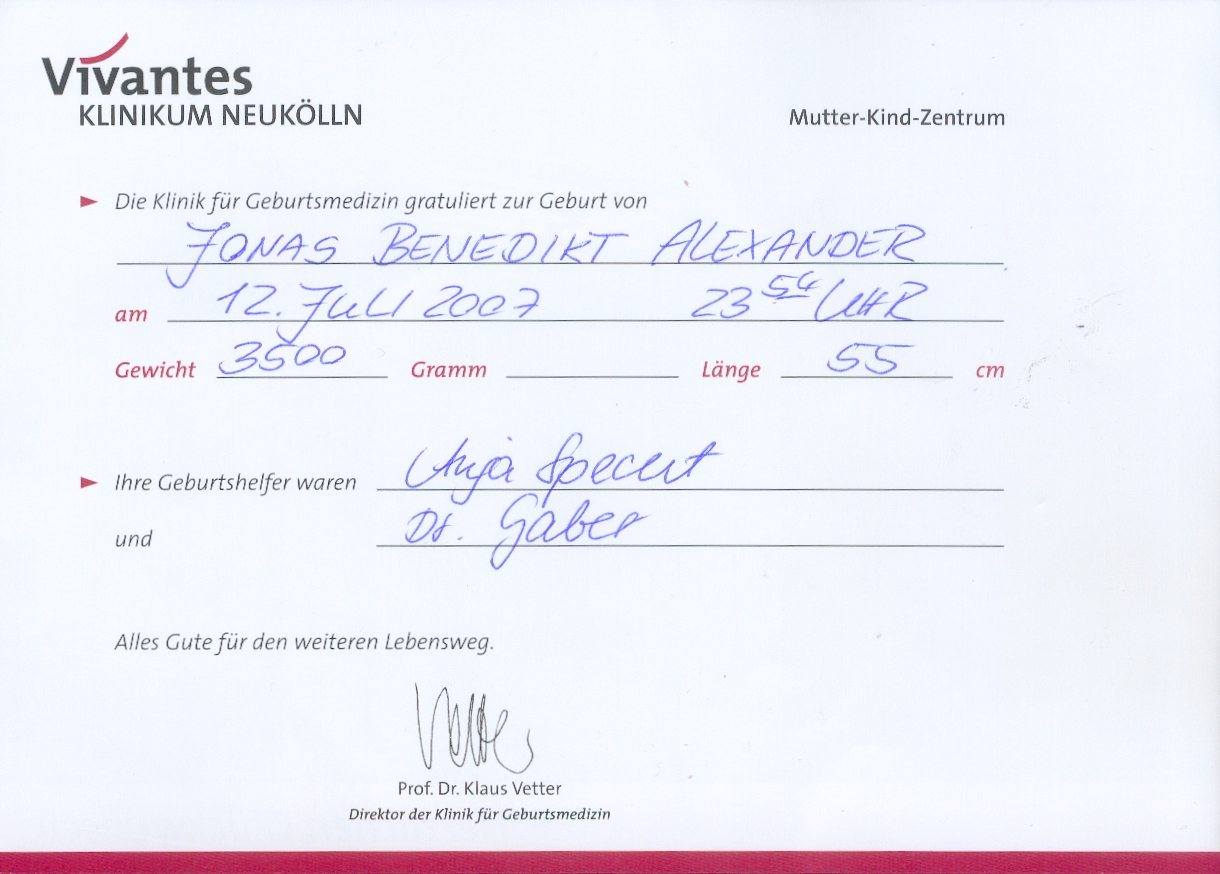 Vivantes
KLINIKUM NEUKÖLLN
Mutter-Kind-Zentrum
Die Klinik für Geburtsmedizin gratuliert zur Geburt von
JONAS BENEDIKT ALEXANDER
am 12. JULI 2007 23 54 UHR
Gewicht 3500 Gramm Länge 55 cm
Ihre Geburtshelfer waren Anja Specht
und Dr. Gaber
Alles Gute für den weiteren Lebensweg.
Vetter
Prof. Dr. Klaus Vetter
Direktor der Klinik für Geburtsmedizin